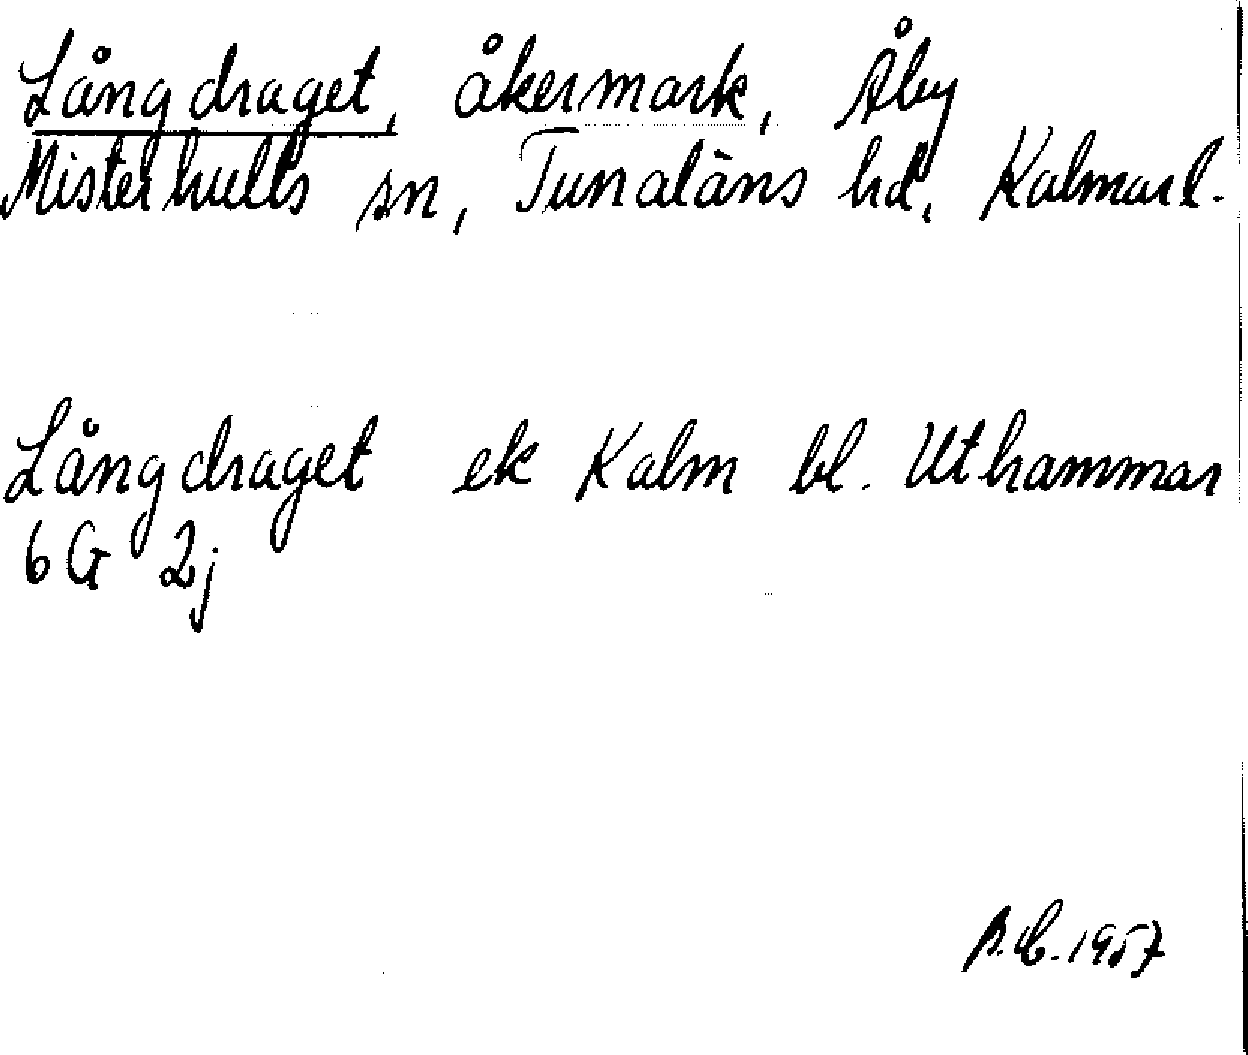 Långdraget, åkermark, Åby
Misterhults sn, Tunaläns hd, Kalmarl.
Långdraget ek Kalm bl. Uthammar
6G 2j
1957